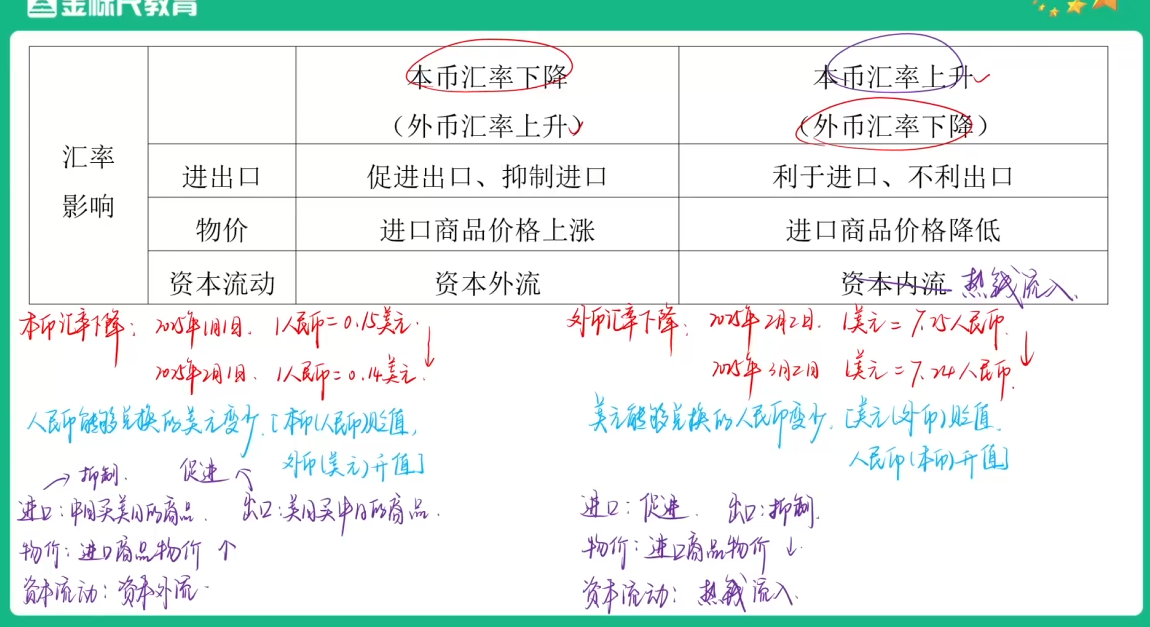 金标尺教育
本币汇率下降
(外币汇率上升)
本币汇率上升
(外币汇率下降)
汇率
影响
进出口
促进出口、抑制进口
利于进口、不利出口
物价
进口商品价格上涨
进口商品价格降低
资本流动
资本外流
资本内流 热钱流入.
本币汇率下降: 2025年1月1日. 1人民币=0.15美元.
2025年2月1日. 1人民币=0.14美元.
人民币能够兑换的美元变少.[本币(人民币)贬值,
外币(美元)升值]
→抑制. 促进
进口:中国买美国的商品. 出口:美国买中国的商品.
物价:进口商品物价↑
资本流动:资本外流.
外币汇率下降: 2025年2月2日. 1美元=7.25人民币.
2025年3月2日 1美元=7.24人民币.
美元能够兑换的人民币变少.[美元(外币)贬值.
人民币(本币)升值]
进口:促进. 出口:抑制.
物价:进口商品物价↓.
资本流动: 热钱流入.